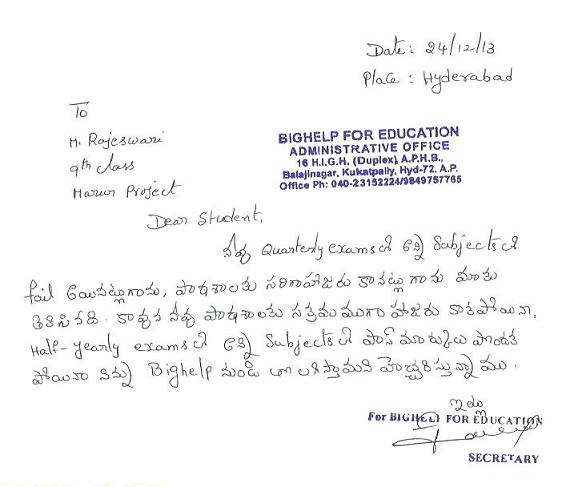 Date: 24/12/13
Place : Hyderabad
To
M. Rajeswari
9th class
Marur Project
BIGHELP FOR EDUCATION
ADMINISTRATIVE OFFICE
16 H.I.G.H. (Duplex), A.P.H.B.,
Balajinagar, Kukatpally, Hyd-72. A.P.
Office Ph: 040-23152224/9849757765
Dear Student,
నీవు Quarterly examsలో అన్ని Subjectsలో
fail అయినట్లుగాను, పాఠశాలకు సరిగాహాజరు కానట్లు గాను మాకు
తెలిసినది. కావున నీవు పాఠశాలకు సక్రమముగా హాజరు కాకపోయినా,
Half-yearly examsలో అన్ని Subjectsలో పాస్ మార్కులు పొందక
పోయినా నిన్ను Bighelp నుండి తొలగిస్తామని హెచ్చరిస్తున్నాము.
ఇట్లు
For BIGHELP FOR EDUCATION
SECRETARY